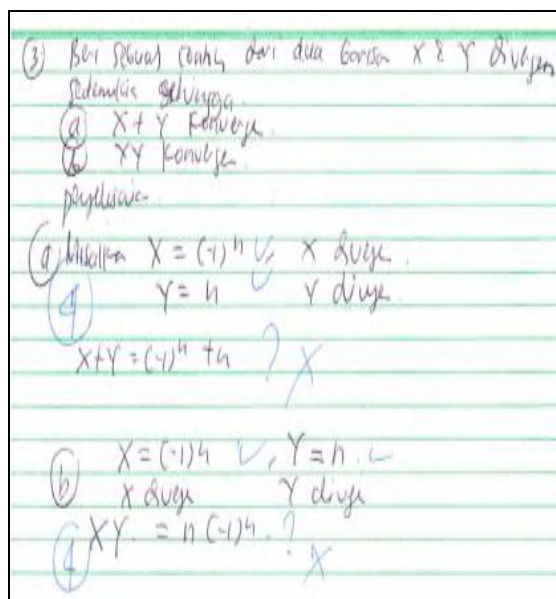 ③ Beri sebuah contoh dari dua barisan X & Y divergen
sedemikian sehingga
ⓐ X + Y konvergen
ⓑ XY konvergen
penyelesaian
ⓐ Misalkan X = (-1)ⁿ, X diverge
4 Y = n Y diverge
X+Y = (-1)ⁿ + n ? X
X = (-1)ⁿ, Y = n
ⓑ X diverge Y diverge
XY = n (-1)ⁿ. ?
4 X